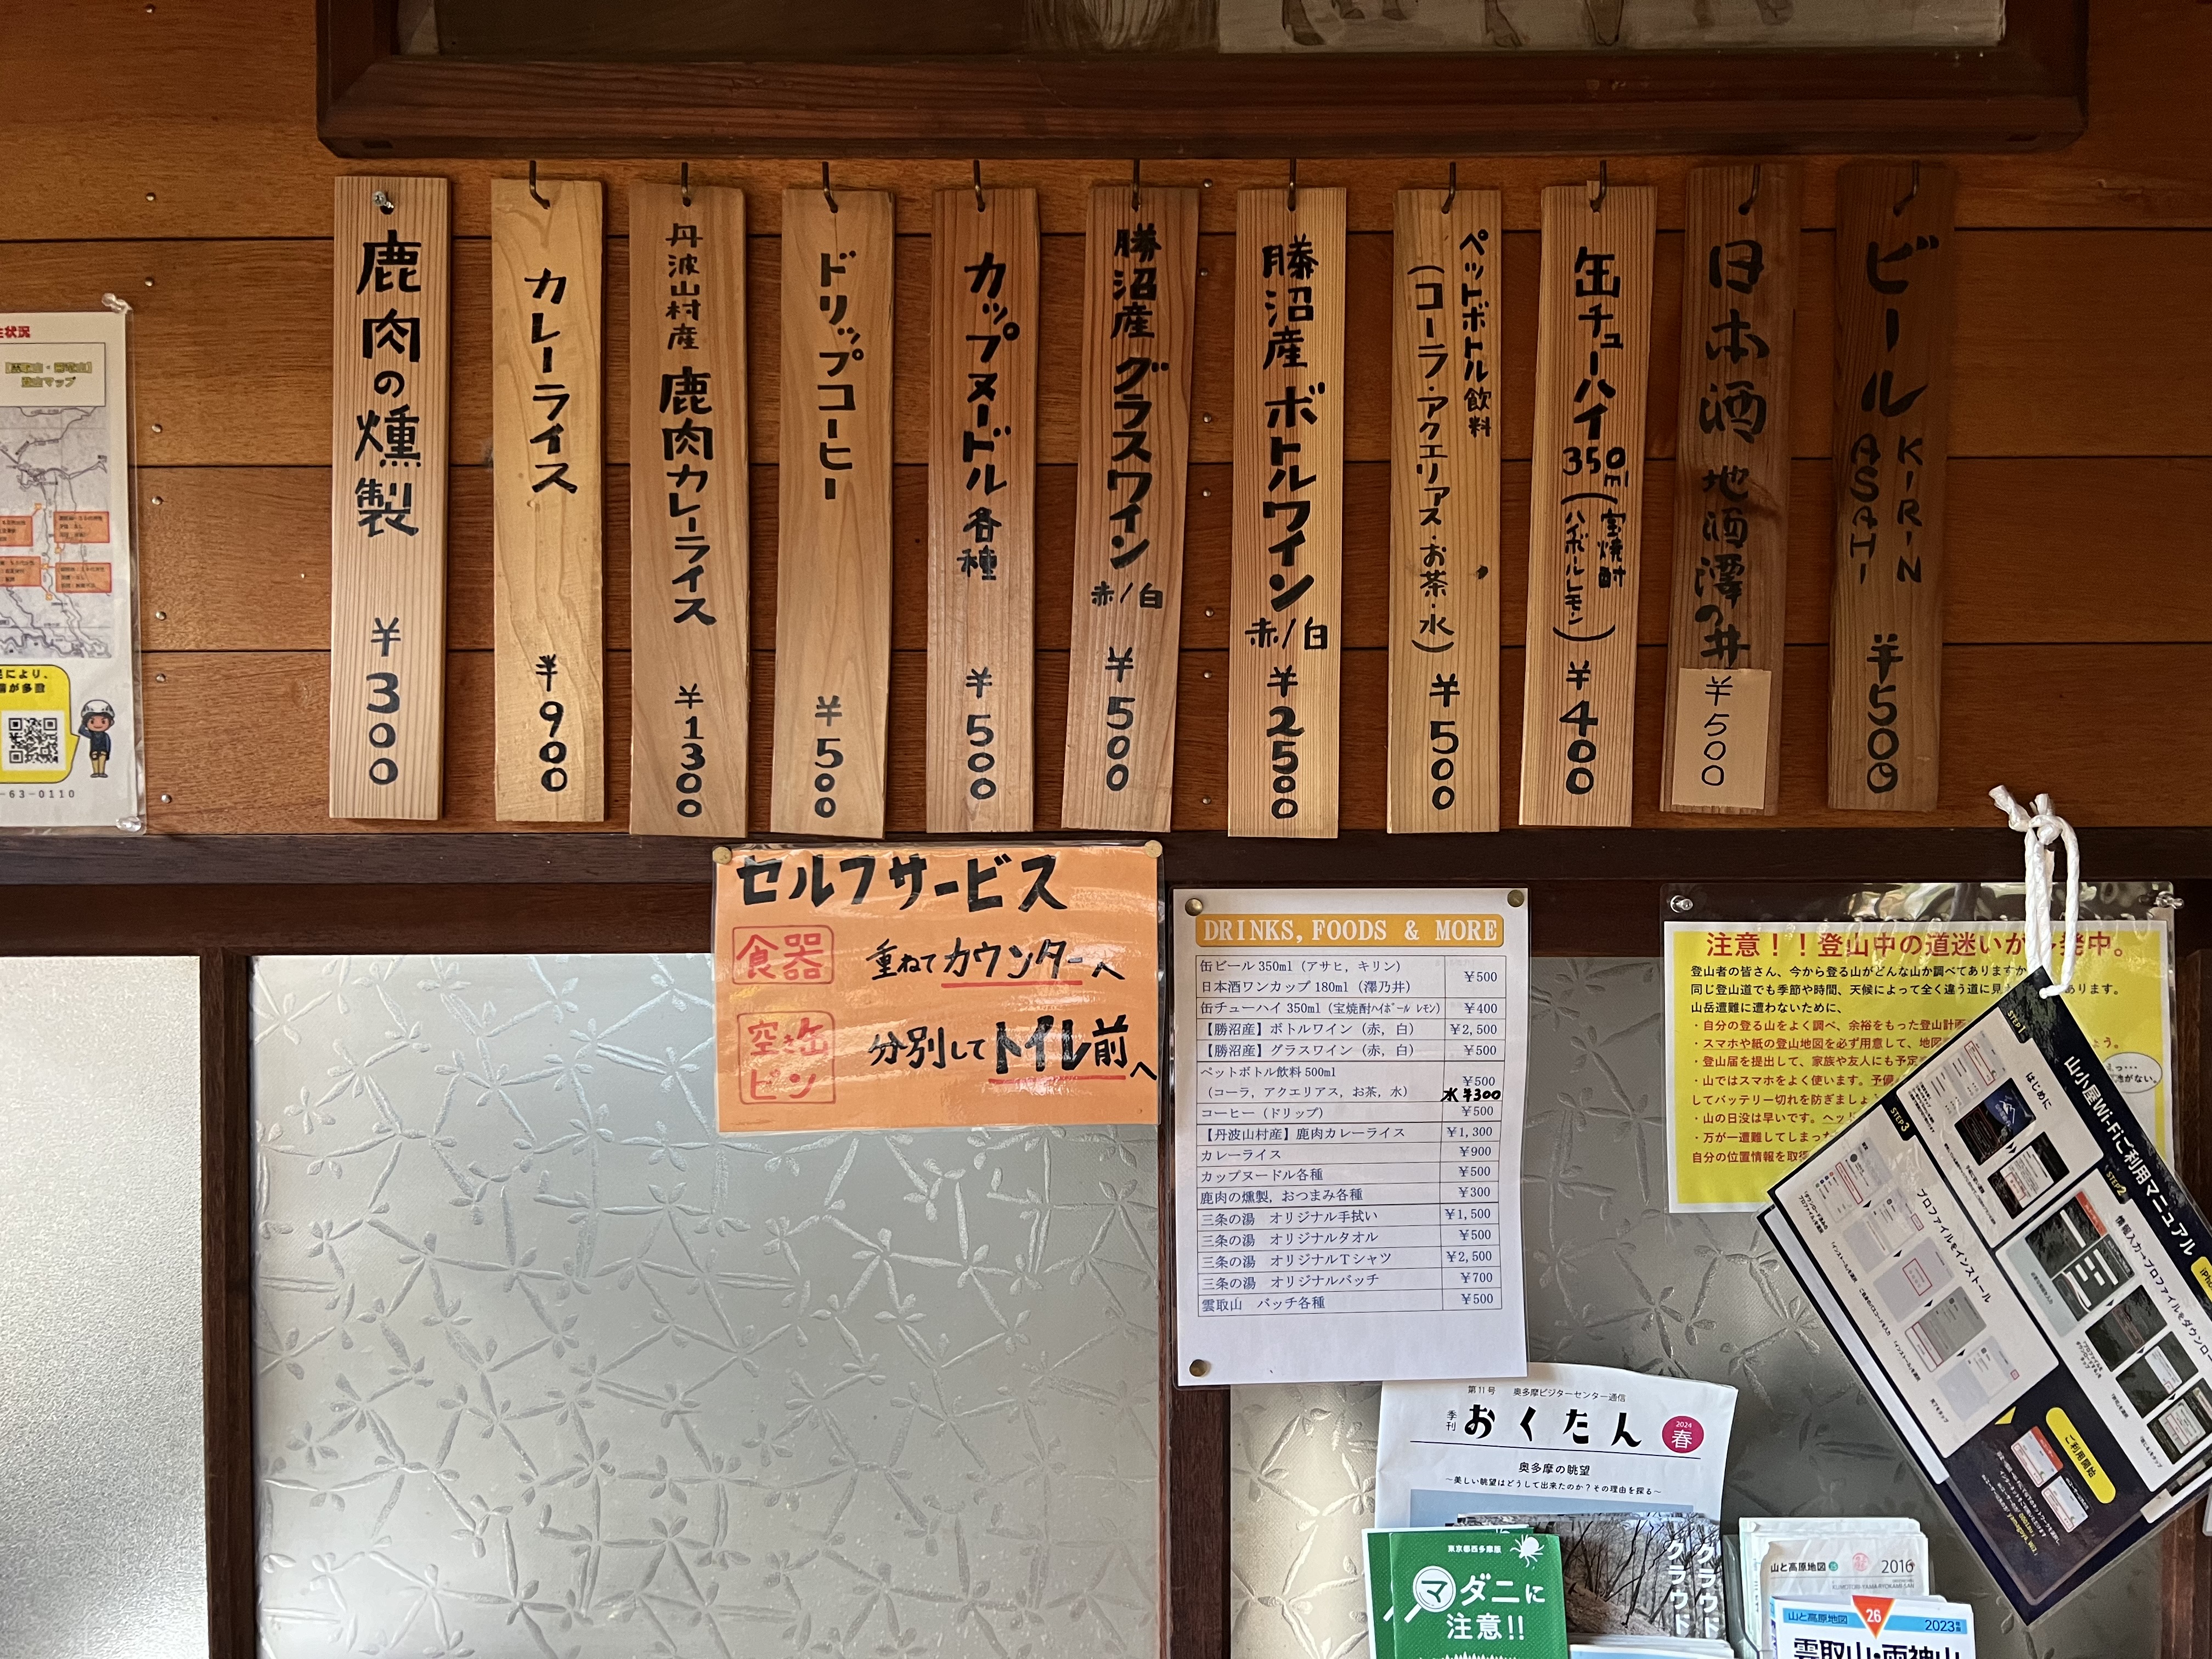 ビール KIRIN ASAHI ¥500
日本酒 地酒澤の井 ¥500
缶チューハイ 350ml (宝焼酎 ハイボールレモン) ¥400
ペットボトル飲料
(コーラ・アクエリアス・お茶・水) ¥500
勝沼産 ボトルワイン 赤/白 ¥2500
勝沼産 グラスワイン 赤/白 ¥500
カップヌードル 各種 ¥500
ドリップコーヒー ¥500
丹波山村産 鹿肉カレーライス ¥1300
カレーライス ¥900
鹿肉の燻製 ¥300
状況
登山マップ
により、
が多数
-63-0110
セルフサービス
食器 重ねてカウンターへ
空き缶 ビン 分別してトイレ前へ
DRINKS, FOODS & MORE
缶ビール 350ml (アサヒ, キリン)
日本酒ワンカップ 180ml (澤乃井) ¥500
缶チューハイ 350ml (宝焼酎ハイボール レモン) ¥400
【勝沼産】ボトルワイン (赤, 白) ¥2,500
【勝沼産】グラスワイン (赤, 白) ¥500
ペットボトル飲料 500ml
(コーラ, アクエリアス, お茶, 水) ¥500
水 ¥300
コーヒー (ドリップ) ¥500
【丹波山村産】鹿肉カレーライス ¥1,300
カレーライス ¥900
カップヌードル各種 ¥500
鹿肉の燻製, おつまみ各種 ¥300
三条の湯 オリジナル手拭い ¥1,500
三条の湯 オリジナルタオル ¥500
三条の湯 オリジナルTシャツ ¥2,500
三条の湯 オリジナルバッチ ¥700
雲取山 バッチ各種 ¥500
注意!!登山中の道迷いが多発中。
登山者の皆さん、今から登る山がどんな山か調べてありますか
同じ登山道でも季節や時間、天候によって全く違う道に見 あります。
山岳遭難に遭わないために、
・自分の登る山をよく調べ、余裕をもった登山計画
・スマホや紙の登山地図を必ず用意して、地図 ょう。
・登山届を提出して、家族や友人にも予定
・山ではスマホをよく使います。予備
してバッテリー切れを防ぎましょ
・山の日没は早いです。ヘッド
・万が一遭難してしまった
自分の位置情報を取得
山小屋Wi-Fiご利用マニュアル
STEP1
はじめに
STEP2
情報入力→プロファイルをダウンロー
STEP3
プロファイルをインストール
ご利用開始
第11号 奥多摩ビジターセンター通信
季刊 おくたん 2024 春
奥多摩の眺望
~美しい眺望はどうして出来たのか?その理由を探る~
東京都西多摩
マダニに
注意!!
クラウド
クラウド
山と高原地図 2016
山と高原地図 26 2023
雲取山・両神山